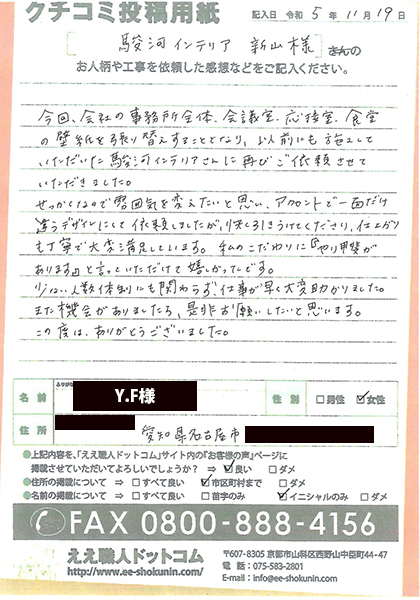 クチコミ投稿用紙
記入日 令和 5 年 11 月 19 日
駿河インテリア 新山 様 さんの
お人柄や工事を依頼した感想などをご記入ください。
今回、会社の事務所全体、会議室、応接室、食堂
の壁紙を張り替えすることとなり、以前にも施工して
いただいた駿河インテリアさんに再びご依頼させて
いただきました。
せっかくなので雰囲気を変えたいと思い、アクセントで一面だけ
違うデザインにして依頼しましたが、快く引きうけてくださり、仕上がり
も丁寧で大変満足しています。私のこだわりに『やり甲斐が
あります』と言っていただけて嬉しかったです。
少ない人数体制にも関わらず、仕事が早く大変助かりました。
また機会がありましたら、是非お願いしたいと思います。
この度は、ありがとうございました。
ふりがな
名前 Y.F様 性別 □男性 ☑女性
住所 愛知県名古屋市
●上記内容を、「ええ職人ドットコム」サイト内の『お客様の声』ページに
掲載させていただいてよろしいでしょうか? ⇒ ☑良い □ダメ
●住所の掲載について ⇒ □すべて良い ☑市区町村まで □ダメ
●名前の掲載について ⇒ □すべて良い □苗字のみ ☑イニシャルのみ □ダメ
FAX 0800-888-4156
ええ職人ドットコム
http://www.ee-shokunin.com/
〒607-8305 京都市山科区西野山中臣町44-47
電話:075-583-2801
E-mail:info@ee-shokunin.com